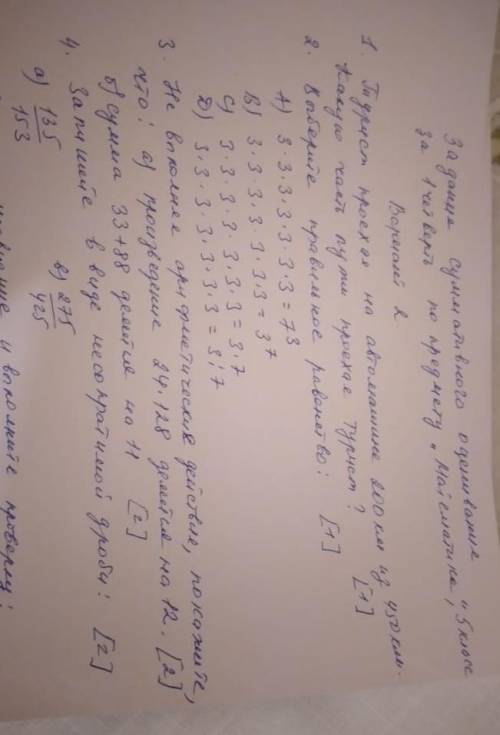 Задание суммативного оценивания
за 1 четверть по предмету "Математика", 5 класс
Вариант 2
1. Турист проехал на автомашине 200 км из 450 км.
Какую часть пути проехал турист? [1]
2. Выберите правильное равенство: [1]
А) 3·3·3·3·3·3·3 = 73
В) 3·3·3·3·3·3·3 = 3⁷
С) 3·3·3·3·3·3·3 = 3·7
D) 3·3·3·3·3·3·3 = 3:7
3. Не выполняя арифметические действия, покажите,
что: а) произведение 24·128 делится на 12. [2]
б) сумма 33+88 делится на 11 [2]
4. Запишите в виде несократимой дроби: [2]
а) 135/153 в) 275/425
и выполните проверку: